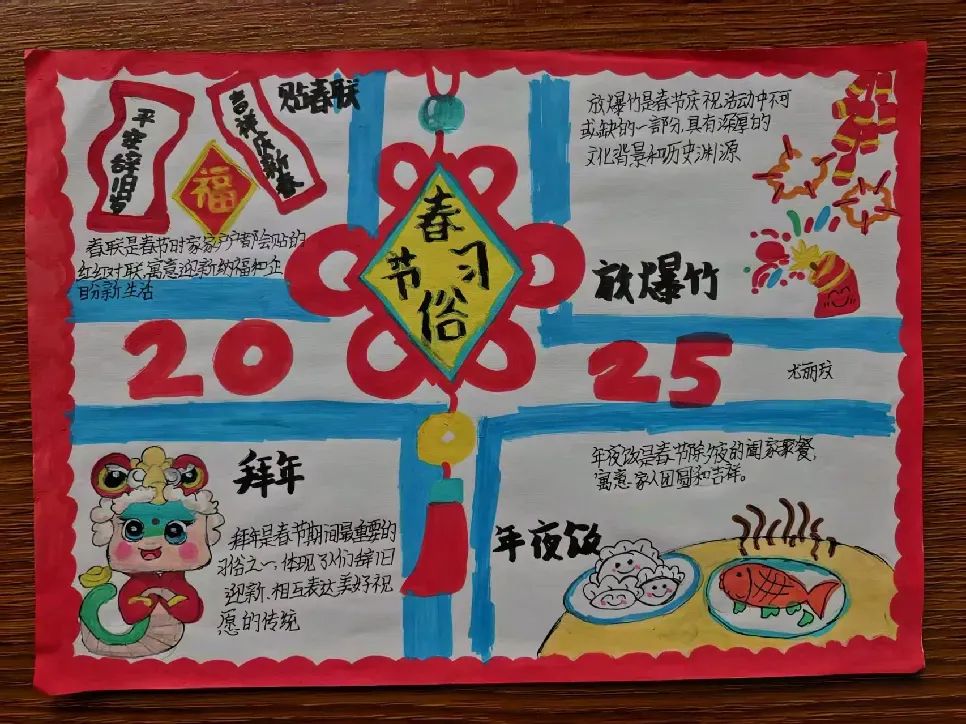 平安辞旧岁
吉祥庆新春
福
贴春联
春联是春节时家家户户都会贴的
红红对联,寓意迎新纳福和企
盼新生活
春
节习
俗
放爆竹是春节庆祝活动中不可
或缺的一部分,具有深厚的
文化背景和历史渊源
放爆竹
2025
尤丽玟
拜年
拜年是春节期间最重要的
习俗之一,体现了人们辞旧
迎新、相互表达美好祝
愿的传统
年夜饭是春节除夕夜的阖家聚餐,
寓意家人团圆和吉祥。
年夜饭